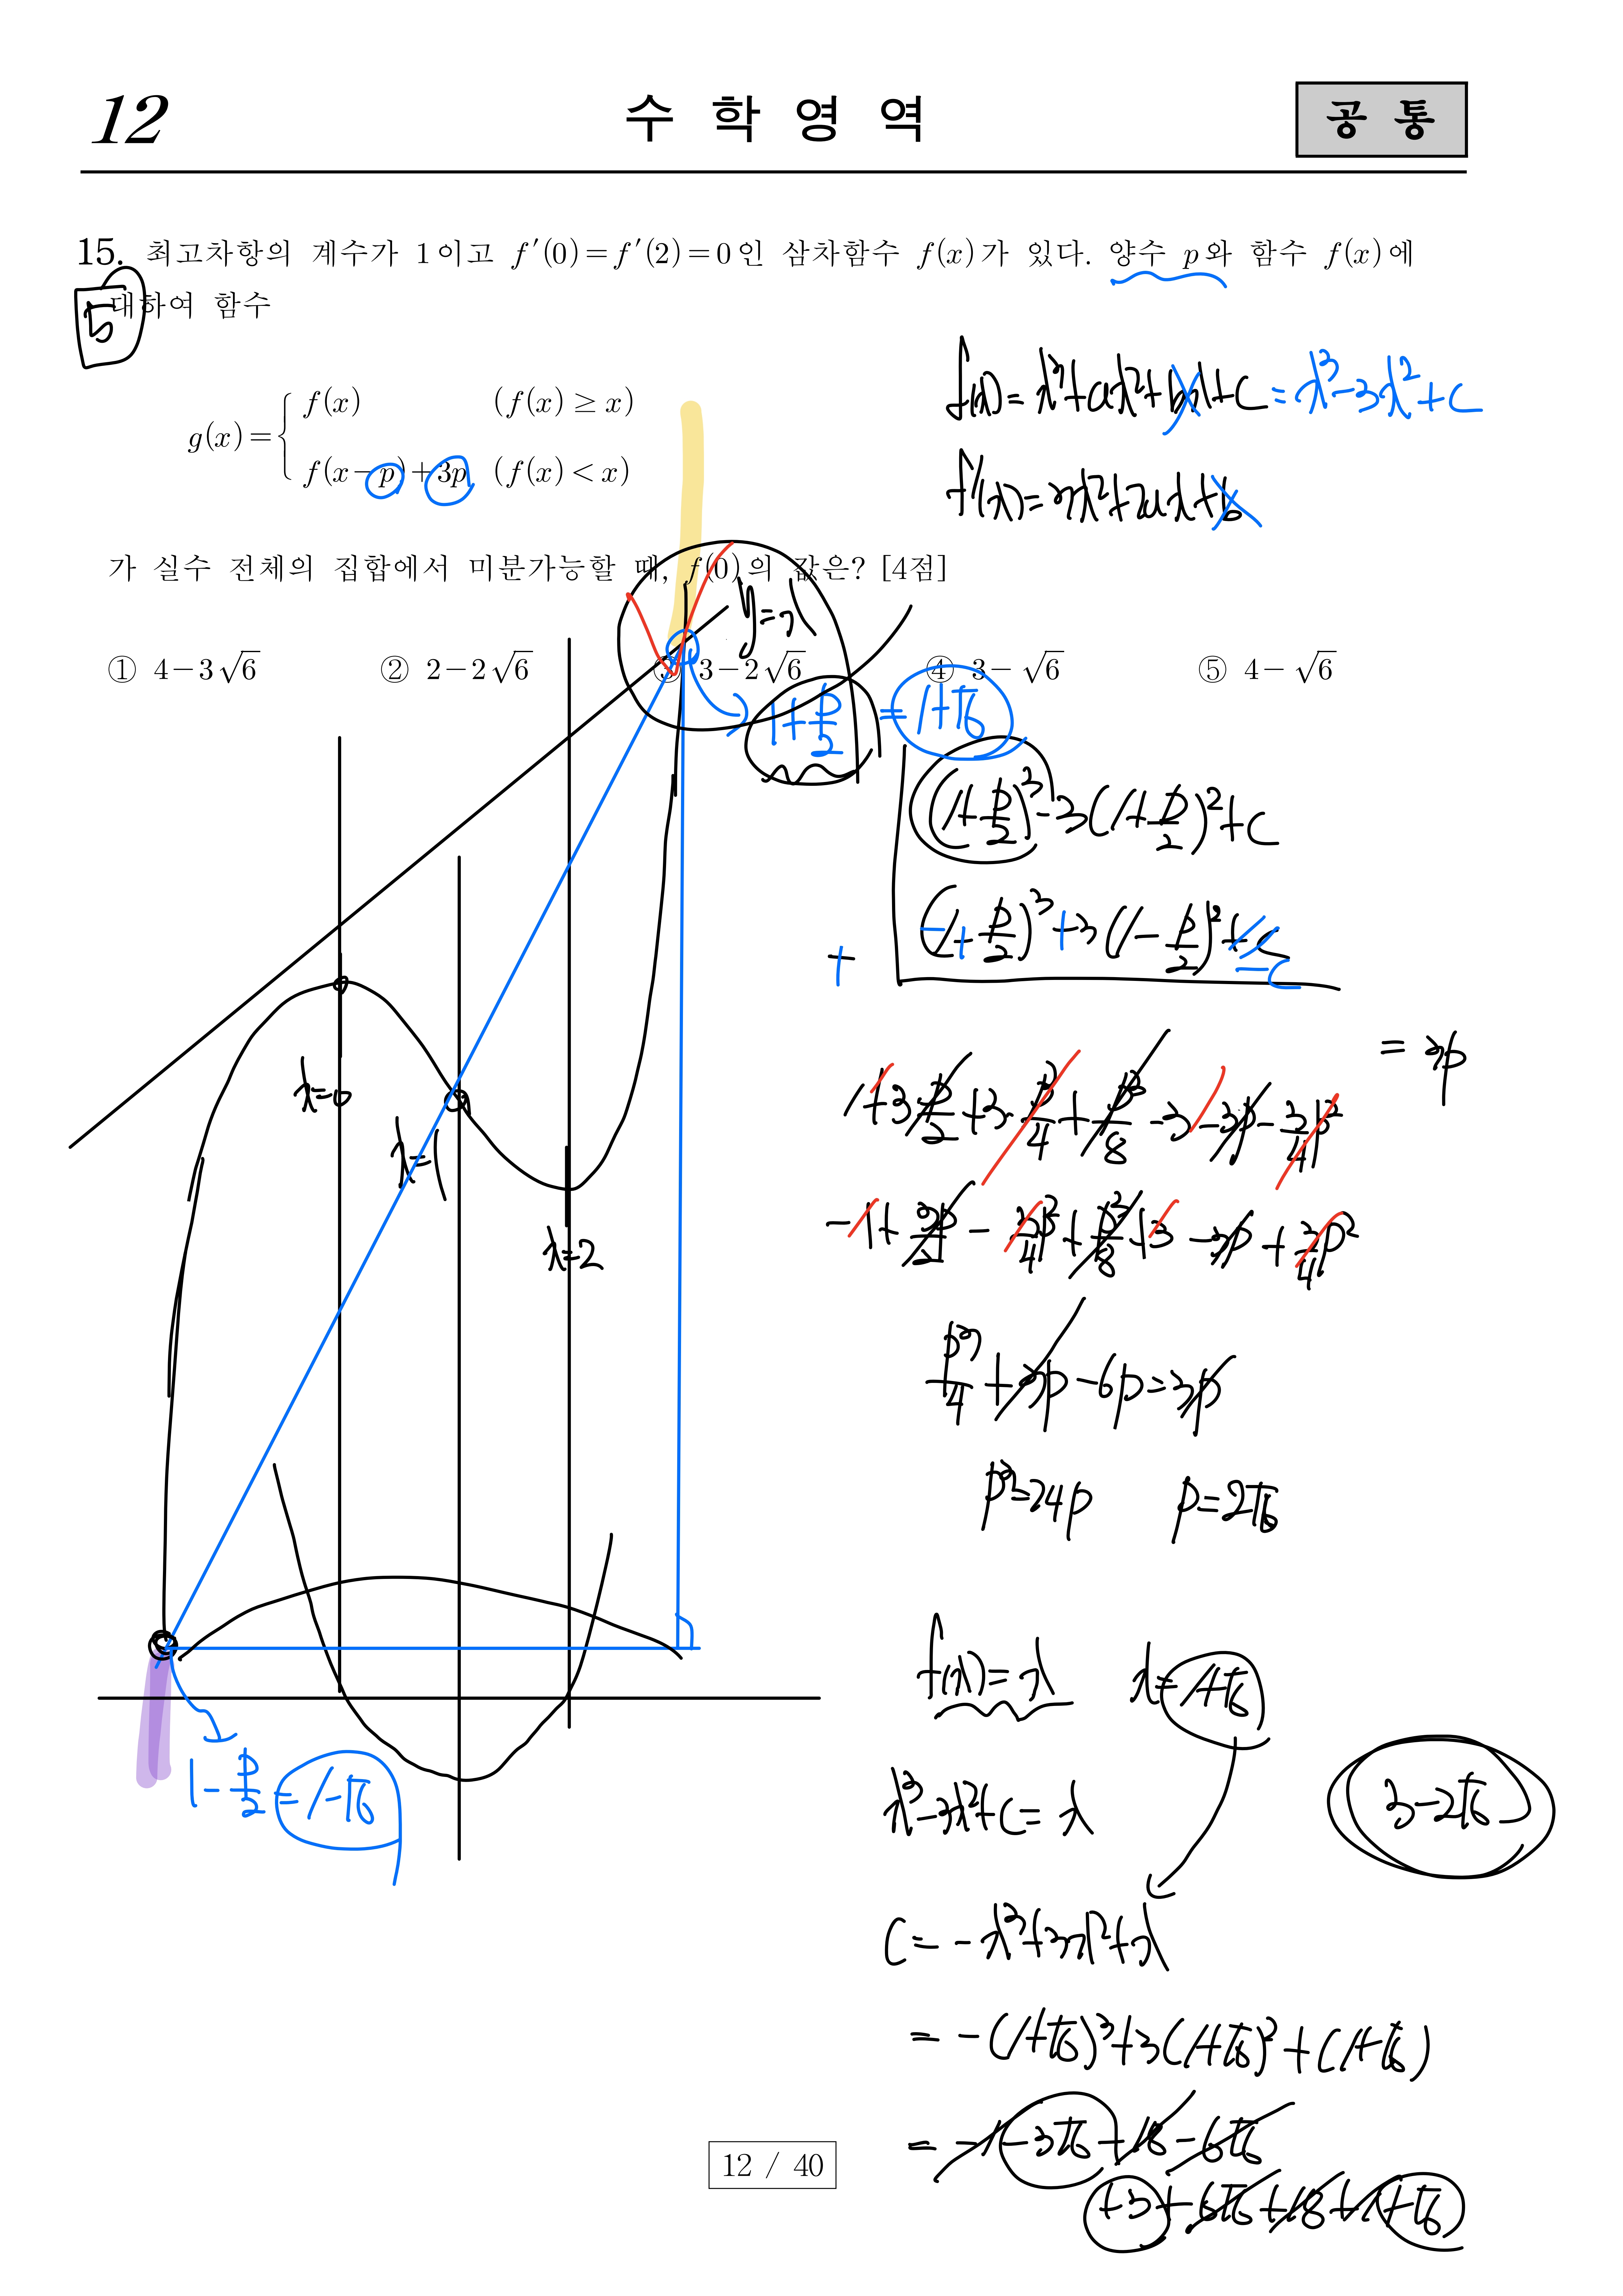 12
수 학 영 역
공 통
15. 최고차항의 계수가 1이고 f′(0)=f′(2)=0인 삼차함수 f(x)가 있다. 양수 p와 함수 f(x)에
대하여 함수
5
g(x)={ f(x) (f(x)≥x)
f(x−p)+3p (f(x)<x)
가 실수 전체의 집합에서 미분가능할 때, f(0)의 값은? [4점]
① 4−3√6 ② 2−2√6 ③ 3−2√6 ④ 3−√6 ⑤ 4−√6
f(x)=x³+ax²+bx+c=x³−3x²+c
f′(x)=3x²+2ax+b
y=x
1+p/2=1+√6
(1+p/2)³−3(1+p/2)²+c
+ (−1+p/2)³+3(1−p/2)²−c
=3p
1+3p/2+3·p²/4+p³/8−3−3p−3/4p²
−1+3p/2−3/4p²+p³/8+3−3p+3/4p²
p³/4+3p−6p=3p
p³=24p p=2√6
x=0
x=1
x=2
1−p/2=1−√6
f(x)=x x=1+√6
x³−3x²+c=x
3−2√6
c=−x³+3x²+x
=−(1+√6)³+3(1+√6)²+(1+√6)
=−1−3√6−18−6√6
+3+6√6+18+1+√6
12 / 40